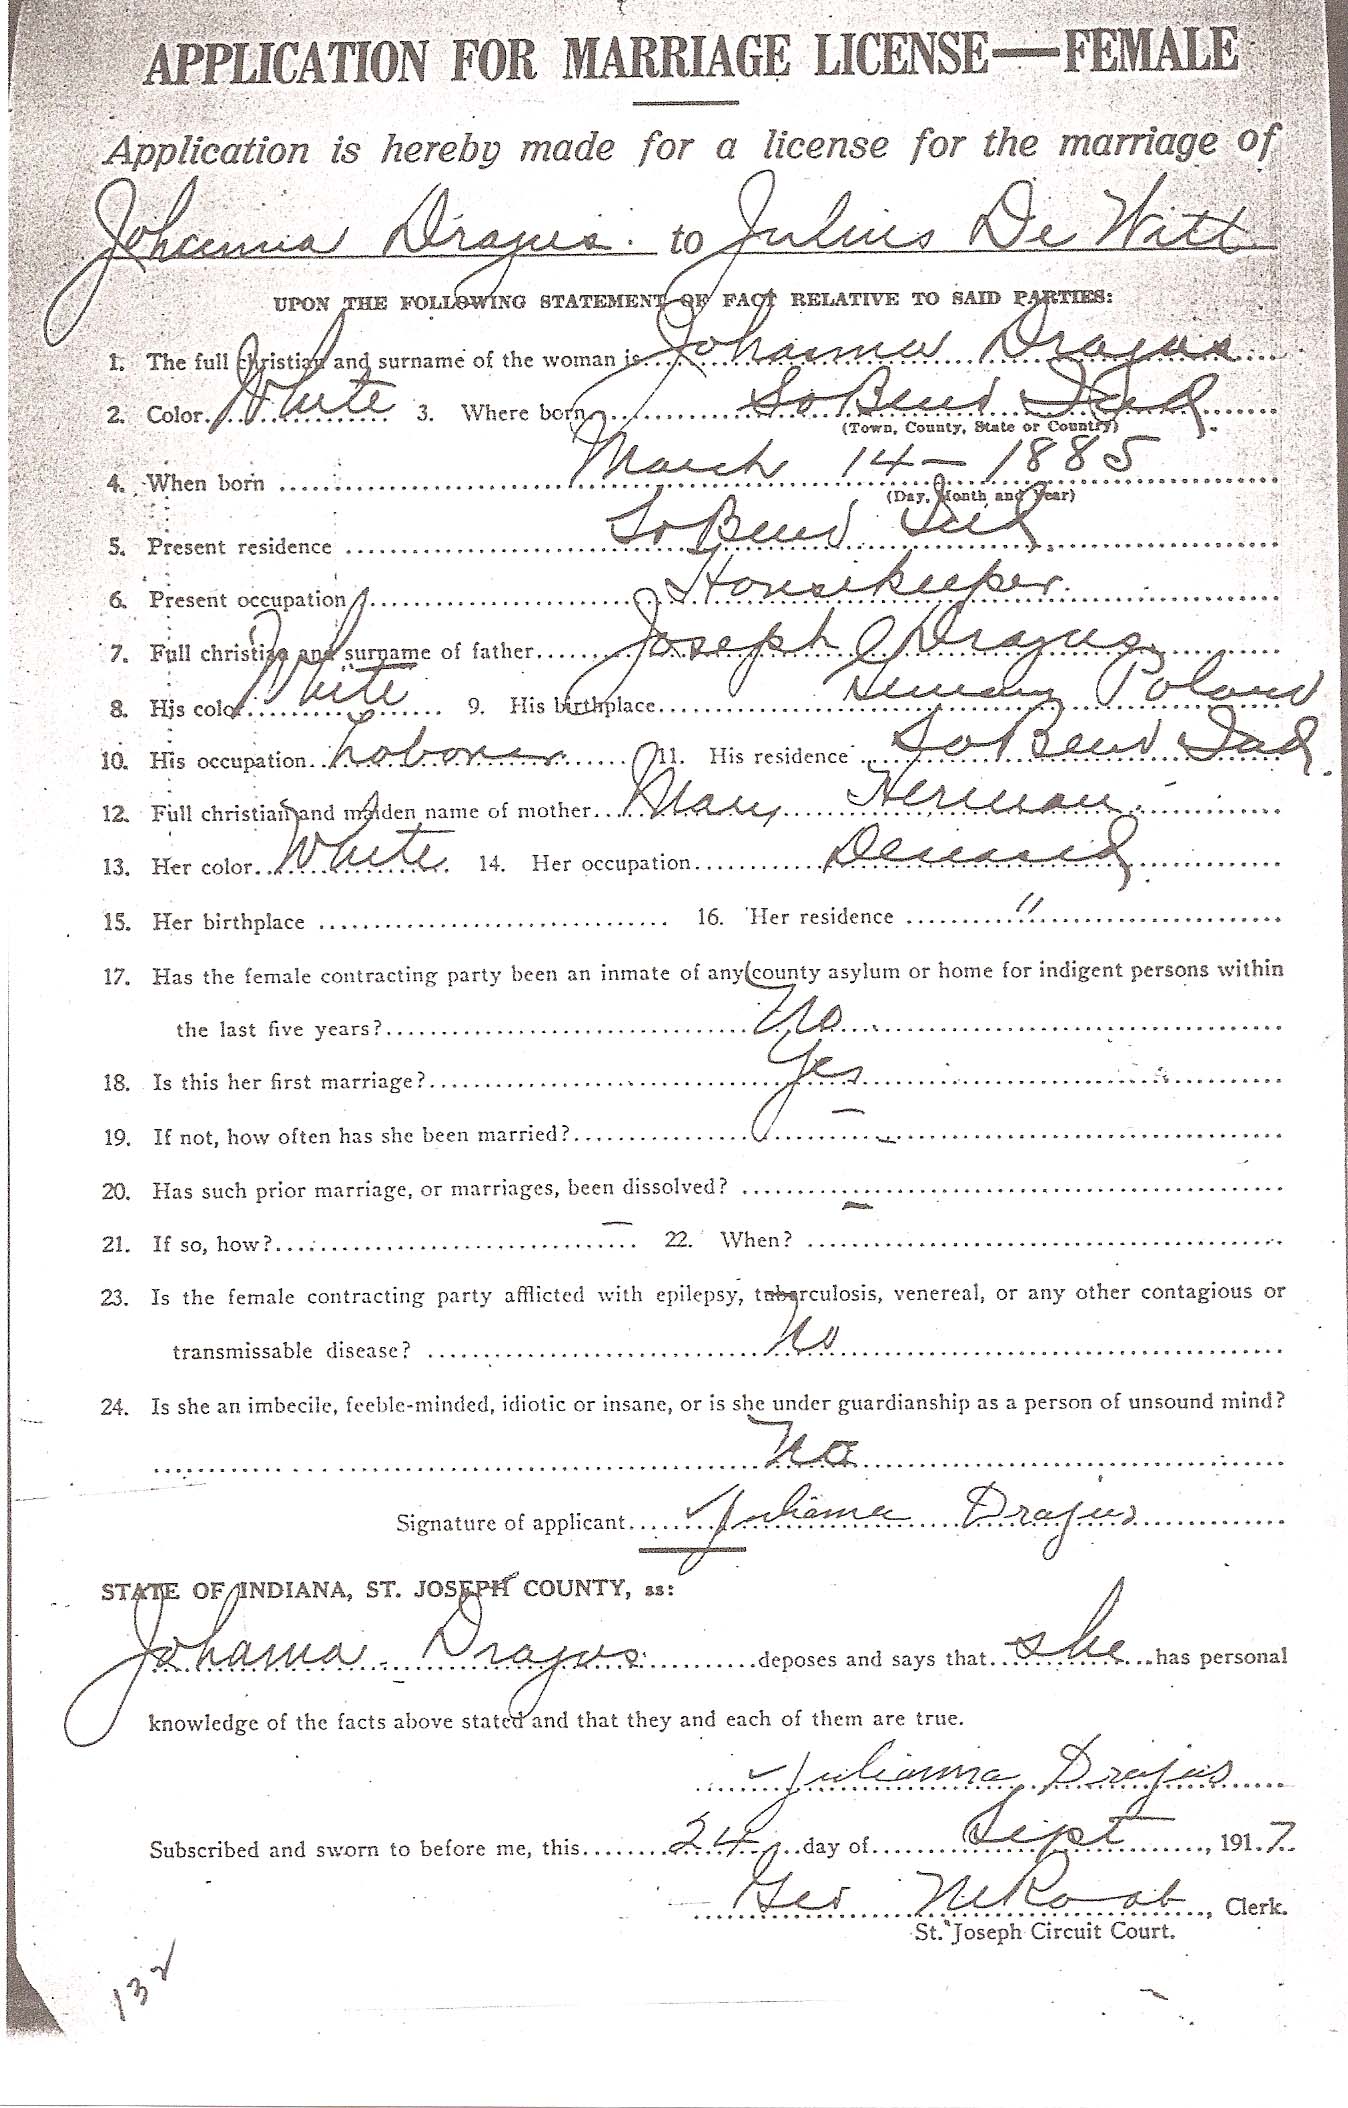 APPLICATION FOR MARRIAGE LICENSE—FEMALE
Application is hereby made for a license for the marriage of
Johanna Drajus. to Julius De Witt
UPON THE FOLLOWING STATEMENT OF FACT RELATIVE TO SAID PARTIES:
1. The full christian and surname of the woman is Johanna Drajus
2. Color White 3. Where born So Bend Ind.
(Town, County, State or Country)
4. When born March 14 – 1885
(Day, Month and Year)
5. Present residence So Bend Ind.
6. Present occupation Housekeeper.
7. Full christian and surname of father Joseph Drajus
8. His color White 9. His birthplace Germany Poland
10. His occupation Laborer 11. His residence So Bend Ind.
12. Full christian and maiden name of mother Mary Herman.
13. Her color White 14. Her occupation Deceased
15. Her birthplace 16. Her residence "
17. Has the female contracting party been an inmate of any county asylum or home for indigent persons within
the last five years? No
18. Is this her first marriage? Yes
19. If not, how often has she been married? –
20. Has such prior marriage, or marriages, been dissolved? –
21. If so, how? – 22. When?
23. Is the female contracting party afflicted with epilepsy, tuberculosis, venereal, or any other contagious or
transmissable disease? No
24. Is she an imbecile, feeble-minded, idiotic or insane, or is she under guardianship as a person of unsound mind?
No
Signature of applicant Julianna Drajus
STATE OF INDIANA, ST. JOSEPH COUNTY, ss:
Johanna Drajus deposes and says that she has personal
knowledge of the facts above stated and that they and each of them are true.
Julianna Drajus
Subscribed and sworn to before me, this 24 day of Sept, 1917.
Geo, Clerk.
St. Joseph Circuit Court.
132